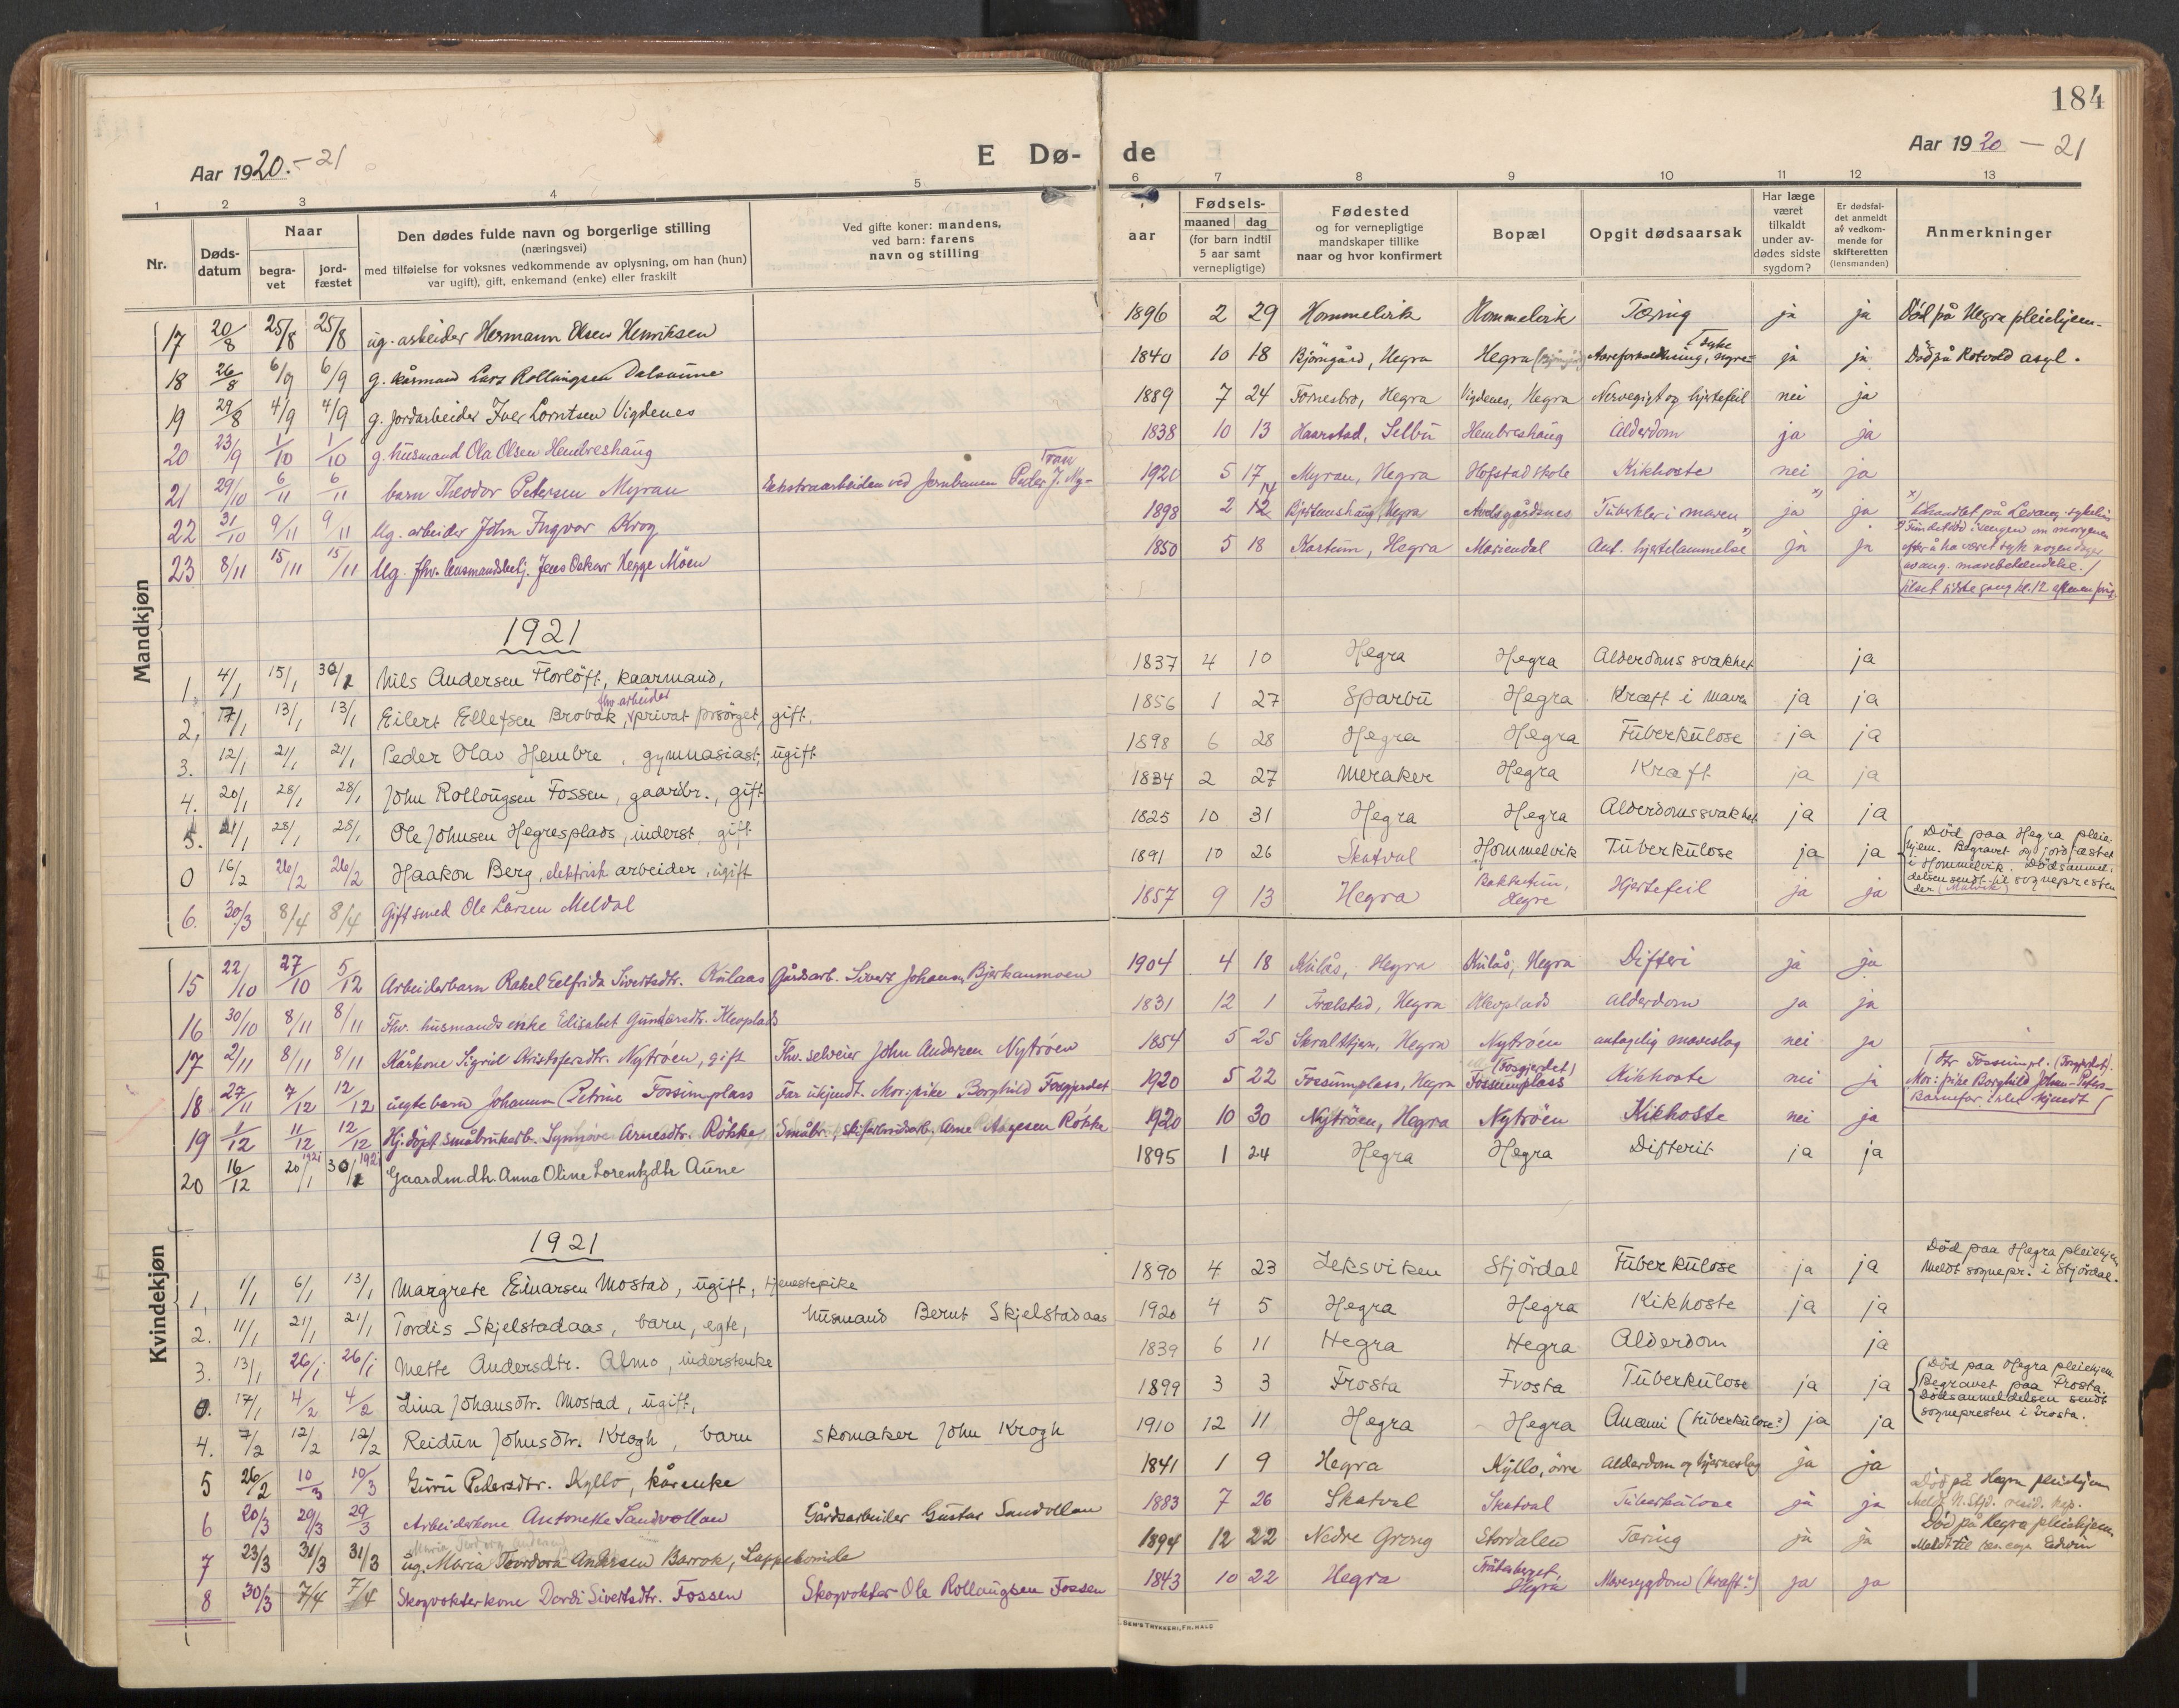 184
Aar 1920.-21
E Dø-
de
Aar 1920 - 21
1 2 3 4 5 6 7 8 9 10 11 12 13
Nr.
Døds-
datum
Naar
begra-
vet
jord-
fæstet
Den dødes fulde navn og borgerlige stilling
(næringsvei)
med tilføielse for voksnes vedkommende av oplysning, om han (hun)
var ugift), gift, enkemand (enke) eller fraskilt
Ved gifte koner: mandens,
ved barn: farens
navn og stilling
aar
Fødsels-
maaned dag
(for barn indtil
5 aar samt
vernepligtige)
Fødested
og for vernepligtige
mandskaper tillike
naar og hvor konfirmert
Bopæl
Opgit dødsaarsak
Har læge
været
tilkaldt
under av-
dødes sidste
sygdom?
Er dødsfal-
det anmeldt
av vedkom-
mende for
skifteretten
(lensmanden)
Anmerkninger
Mandkjøn
17 20/8 25/8 25/8 ug. arbeider Hermann Olsen Henriksen 1896 2 29 Hommelvik Hommelvik Tæring ja ja Död på Hegra pleiehjem.
18 26/8 6/9 6/9 g. kårmand Lars Rollaugsen Dalaune 1840 10 18 Björngård, Hegra Hegra (Björngård) Aareforkalkning, nyre- syke ja ja Död på Rotvold asyl.
19 29/8 4/9 4/9 g. jordarbeider Iver Lorntsen Vigdenes 1889 7 24 Fornesbro, Hegra Vigdenes, Hegra Nervegigt og hjertefeil nei ja
20 23/9 1/10 1/10 g. husmand Ola Olsen Hembreshaug 1838 10 13 Haarstad, Selbu Hembreshaug Alderdom ja ja
21 29/10 6/11 6/11 barn Theodor Petersen Myran Ekstraarbeider ved Jernbanen Peter J. My- ran 1920 5 17 Myran, Hegra Hofstad skole Kikhoste nei ja
22 31/10 9/11 9/11 Ug. arbeider John Ingvar Krog 1898 2 12 14 Bjertemshaug, Hegra Avelsgårdsnes Tuberkler i maven ja x) ja x) Behandlet på Levang. sykehus
23 8/11 15/11 15/11 Ug. fhv. lensmandsbetj. Jens Oskar Hegge Möen 1850 5 18 Kartum, Hegra Mariendal Ant. hjertelammelse x) ja ja x) Fundet död i sengen om morgenen
efter å ha været syk nogen dager
av ang. mavebetændelse.
tilset sidste gang kl. 12 aftenen forut.
1921
1. 4/1 15/1 30/1 Nils Andersen Florlöft, kaarmand, 1837 4 10 Hegra Hegra Alderdomssvakhet ja
2. 17/1 13/1 13/1 Eilert Ellefsen Brovak, fhv. arbeider privat forsörget, gift. 1856 1 27 Sparbu Hegra Kræft i mava ja ja
3. 12/1 21/1 21/1 Peder Olav Hembre, gymnasiast, ugift 1898 6 28 Hegra Hegra Tuberkulose ja ja
4. 20/1 28/1 28/1 John Rollaugsen Fossen, gaardbr., gift 1834 2 27 Meraker Hegra Kræft ja ja
5. 21/1 28/1 28/1 Ole Johnsen Hegresplads, inderst, gift 1825 10 31 Hegra Hegra Alderdomssvakhet ja ja
0 16/2 26/2 26/2 Haakon Berg, elektrisk arbeider, ugift 1891 10 26 Skatval Hommelvik Tuberkulose ja ja Död paa Hegra pleie-
hjem. Begravet og jordfæstet
i Hommelvik. Dödsanmel-
delsen sendt til sognepresten
der (Malvik)
6. 30/3 8/4 8/4 Gift smed Ole Larsen Meldal 1857 9 13 Hegra Bakketun, Hegre Hjertefeil ja ja
Kvindekjøn
15 22/10 27/10 5/12 Arbeiderbarn Rakel Eelfrida Sivertsdtr. Kulaas Gårdsarb. Sivert Johansn. Bjerkanmoen 1904 4 18 Kulås, Hegra Kulås, Hegra Difteri ja ja
16 30/10 8/11 8/11 Fhv. husmandsenke Elisabet Gunnarsdtr. Kleoplads 1831 12 1 Frælstad, Hegra Kleoplads Alderdom ja ja
17 2/11 8/11 8/11 Kårkone Sigrid Kristofersdtr. Nytröen, gift Fhv. selveier John Andersen Nytröen 1854 5 25 Skraltkjær, Hegra Nytröen antagelig maveslag nei ja
18 27/11 7/12 12/12 uegte barn Johanna Petrine Fossimplass Far ukjendt. Mor: pike Borghild Fosgjerdet 1920 5 22 Fossumplass, Hegra (Fosgjerdet) Fossumplass Kikhoste nei ja
Mor: pike Borghild Johan-Peters-
Barnefar ikke kjendt
19 1/12 11/12 12/12 Hj. döpt småbrukerb. Synnöve Arnesdtr. Rökke Småbr., skiferbrudsarb. Arne Aagesen Rökke 1920 10 30 Nytröen, Hegra Nytröen Kikhoste nei ja
20 16/12 20/1 1921 30/1 1921 Gaardm.dtr. Anna Oline Lorentzdtr Aune 1895 1 24 Hegra Hegra Difterit ja ja
1921
1. 1/1 6/1 13/1 Margrete Einarsen Mostad, ugift, tjenestepike 1890 4 23 Leksviken Stjördal Tuberkulose ja ja Död paa Hegra pleiehjem
Meldt sognepr. i Stjördal.
2. 11/1 21/1 21/1 Tordis Skjelstadaas, barn, egte, Husmand Bernt Skjelstadaas 1920 4 5 Hegra Hegra Kikhoste ja ja
3. 13/1 26/1 26/1 Mette Andersdtr. Almo, inderstenke 1839 6 11 Hegra Hegra Alderdom ja
0. 17/1 4/2 4/2 Lina Johansdtr. Mostad, ugift, 1899 3 3 Frosta Frosta Tuberkulose ja ja Död paa Hegra pleiehjem
Begravet paa Frosta.
Dödsanmeldelsen sendt
sognepresten i Frosta.
4. 7/2 12/2 12/2 Reidun Johnsdtr. Krogh, barn skomaker John Krogh 1910 12 11 Hegra Hegra Anæmi (tuberkulose?) ja ja
5 26/2 10/3 10/3 Guru Pedersdtr. Kyllo, kårenke 1841 1 9 Hegra Kyllo, övre Alderdom og hjerneslag ja ja
6 20/3 29/3 29/3 Arbeiderkone Antonette Sandvollan Gårdsarbeider Gustav Sandvollan 1883 7 26 Skatval Skatval Tuberkulose ja ja Död på Hegra pleiehjem
Meldt N. Stjd. resid. kap.
7 23/3 31/3 31/3 ug. Maria Teordora Andersen Barrok, Lappekvinde 1894 12 22 Nedre Grong Stordalen Tæring ja ja Död på Hegra pleiehjem
8 30/3 7/4 7/4 Skogvokterkone Dordi Sivertsdtr. Fossen Skogvokter Ole Rollaugsen Fossen 1843 10 22 Hegra Hegra Mavesygdom (kræft?) ja ja